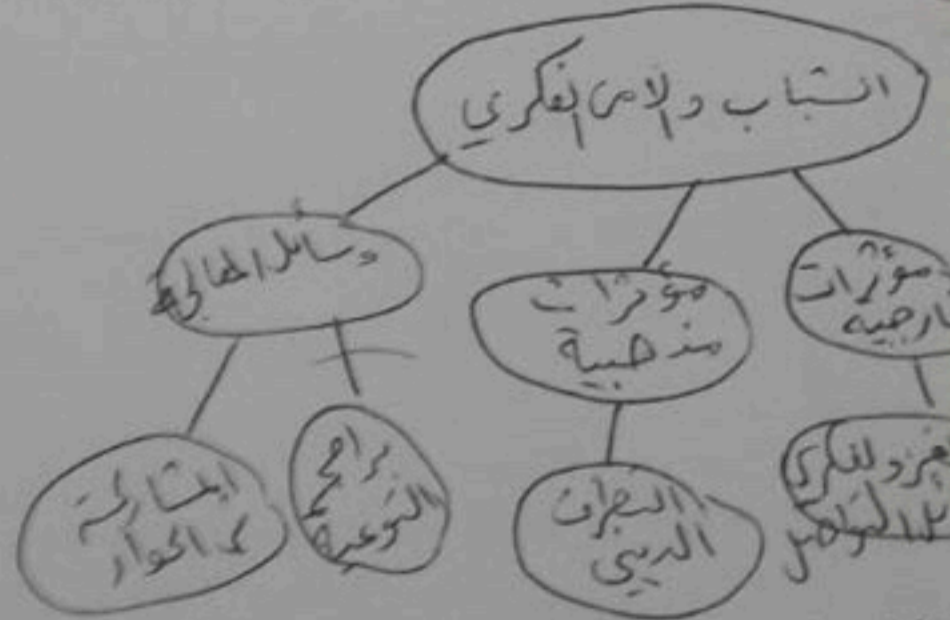 الشباب والامن الفكري
مؤثرات
ارجيه
مؤثرات
مذهبية
وسائل المعالجة
الغزو الفكري
ل التواصل
التطرف
الديني
برامج
التوعية
المشاركة
الحوار